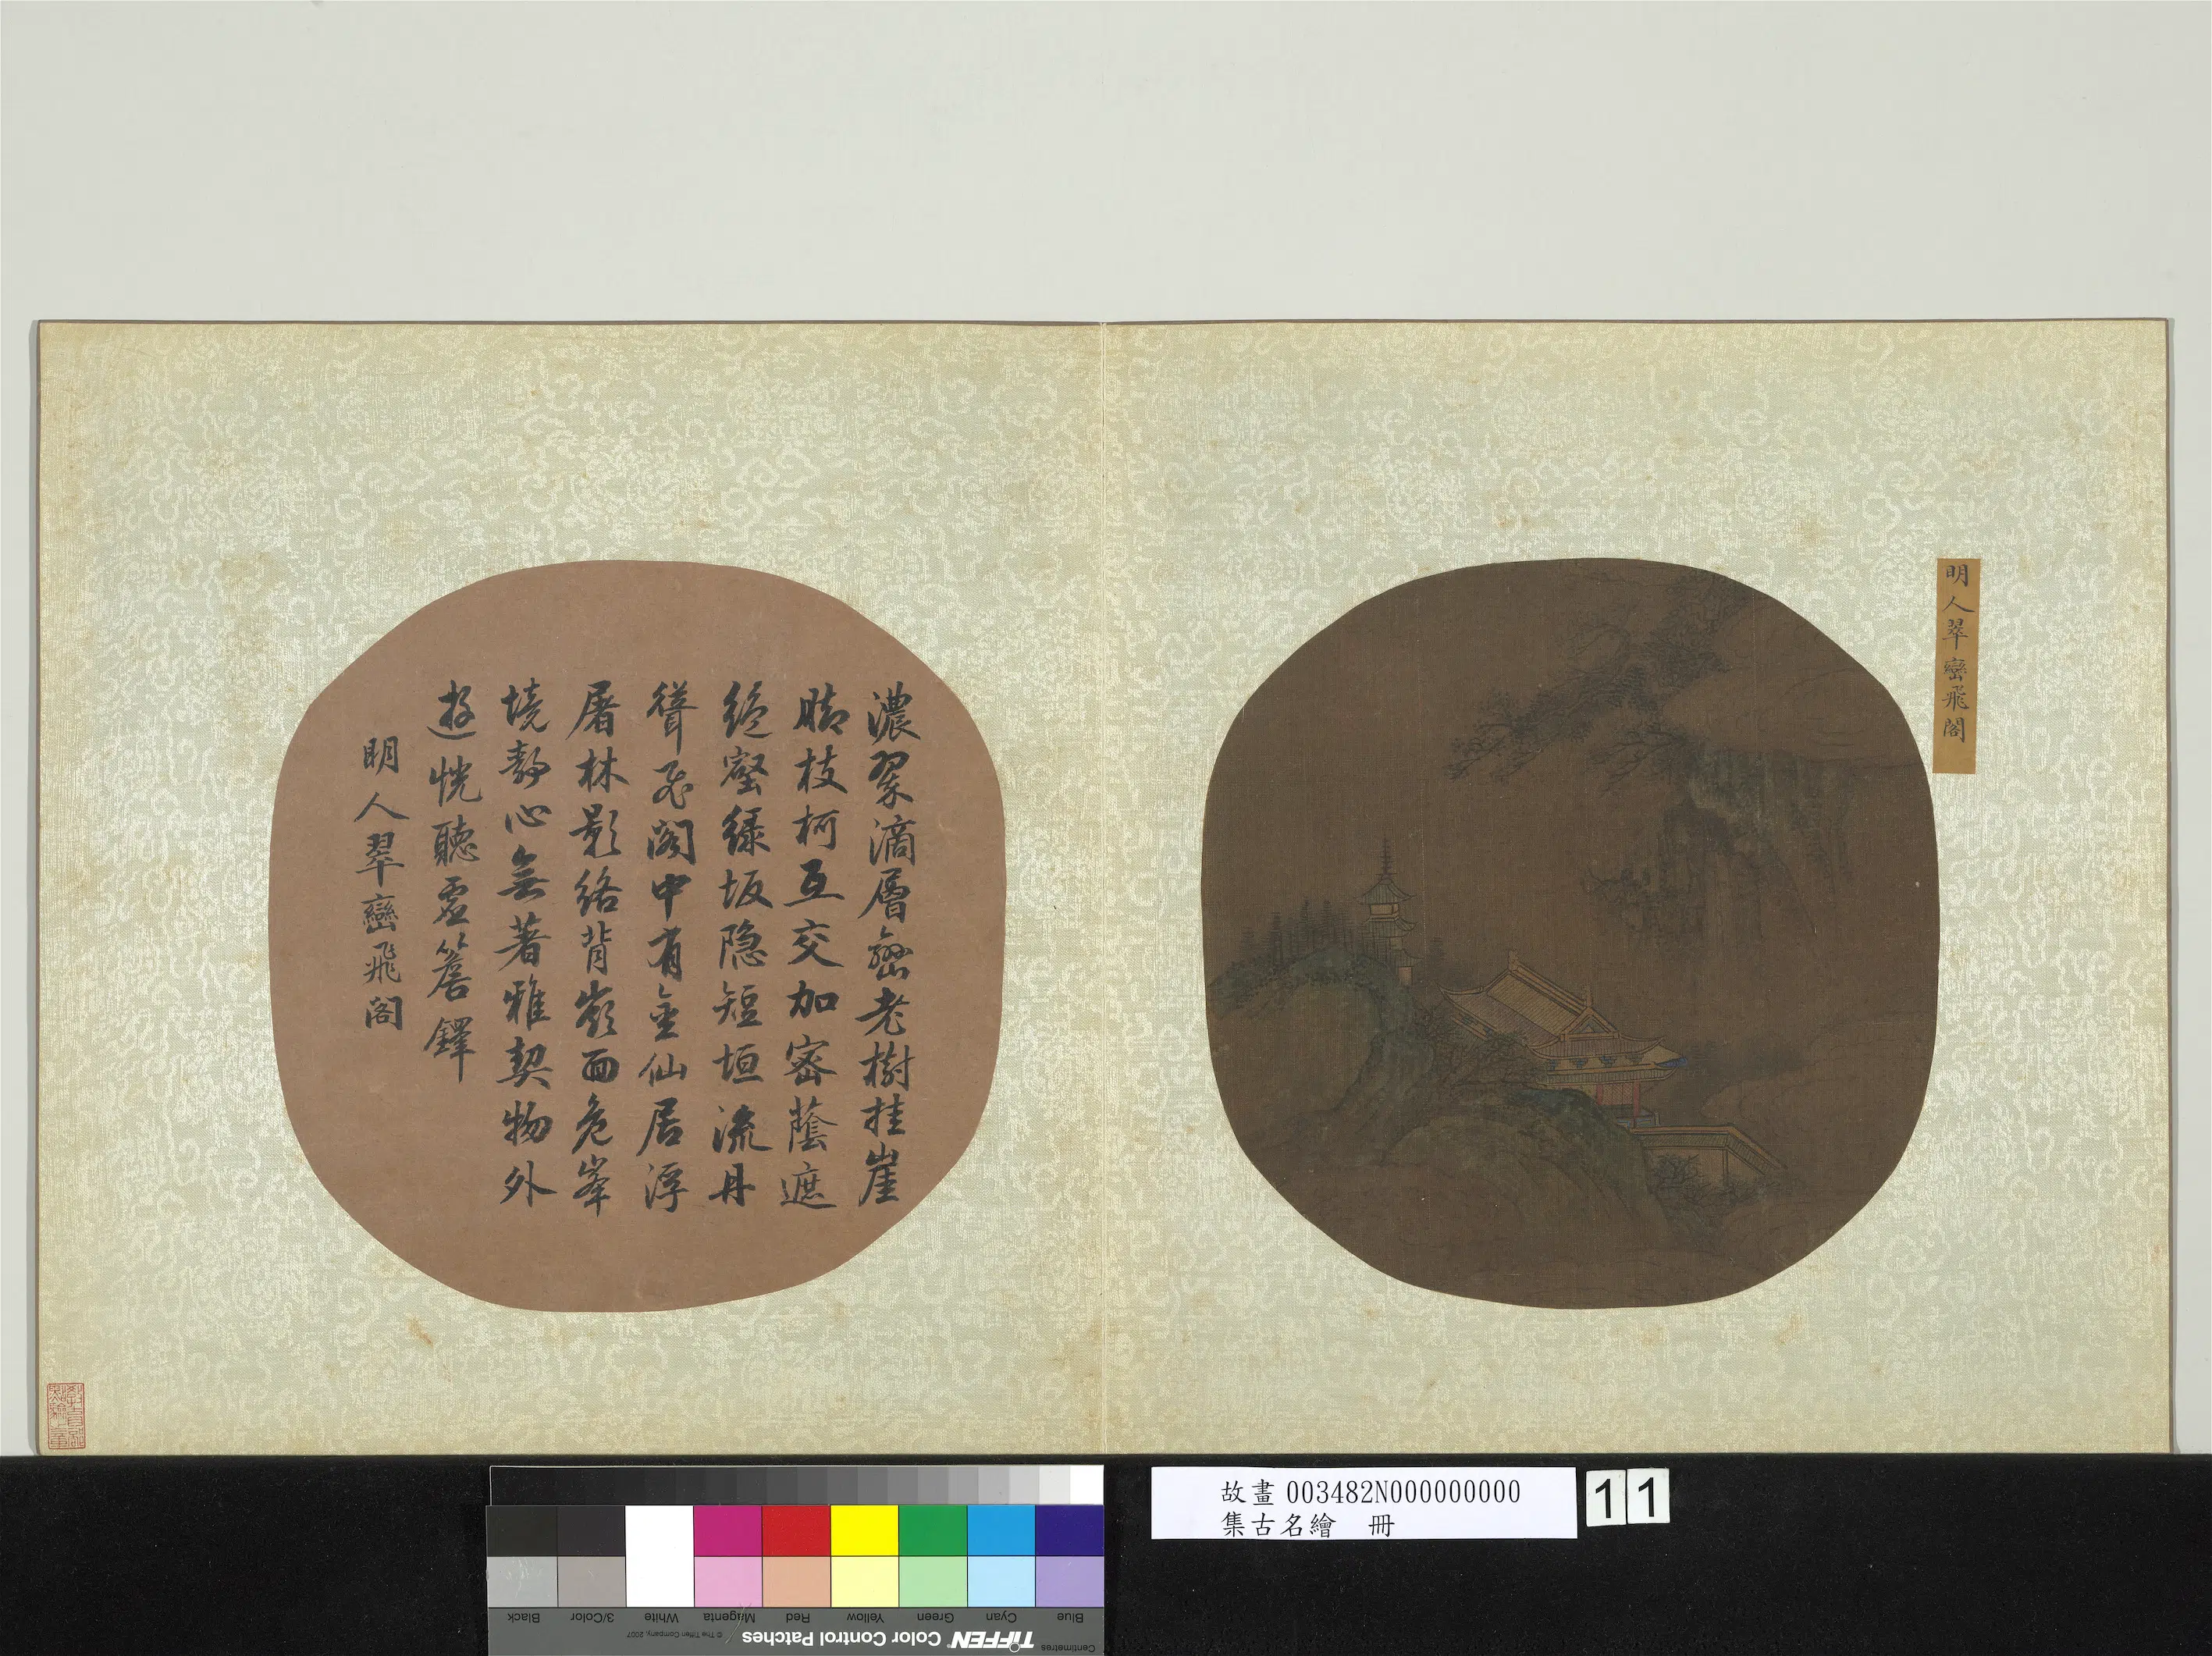 明人翠巒飛閣
濃翠滴層巒老樹挂崖
腈枝柯互交加密蔭遮
絕壑緣坂隐短垣流丹
聳飛閣中有金仙居浮
屠林影絡背嶺面危峯
境靜心無著雅契物外
遊恍聽虛簷鐸
明人翠巒飛閣
故畫003482N000000000
集古名繪 冊
11
Black
3/Color
White
Magenta
Red
Yellow
Green
Cyan
Blue
© The Tiffen Company, 2007
TIFFEN Color Control Patches
Centimetres